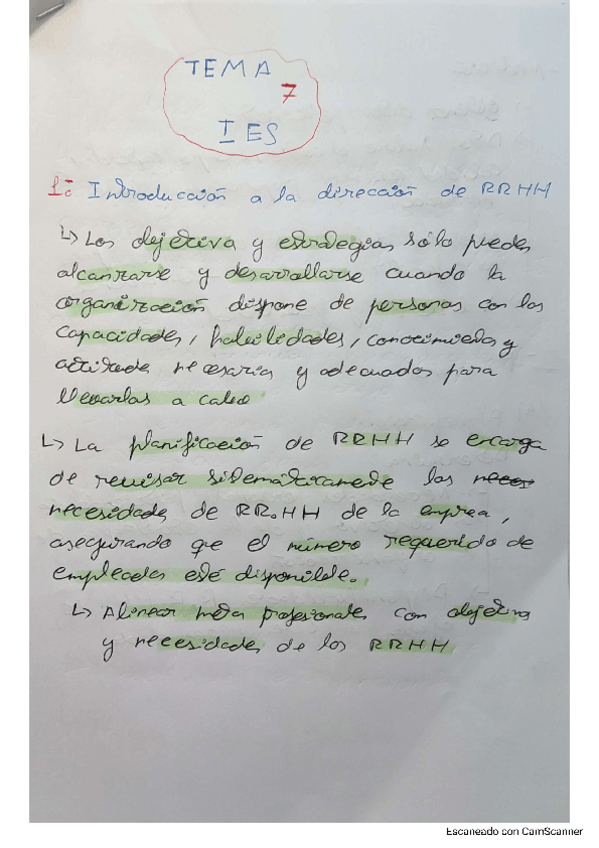 TEMA
7
IES
1: Introducción a la dirección de RRHH
↳ Los objetivos y estrategias sólo pueden
alcanzarse y desarrollarse cuando la
organización dispone de personas con las
capacidades, habilidades, conocimientos y
actitudes necesarias y adecuadas para
llevarlas a cabo
↳ La planificación de RRHH se encarga
de revisar sistemáticamente las neces
necesidades de RR.HH de la empresa,
asegurando que el número requerido de
empleados esté disponible.
↳ Alinear metas profesionales con objetivos
y necesidades de los RRHH
Escaneado con CamScanner